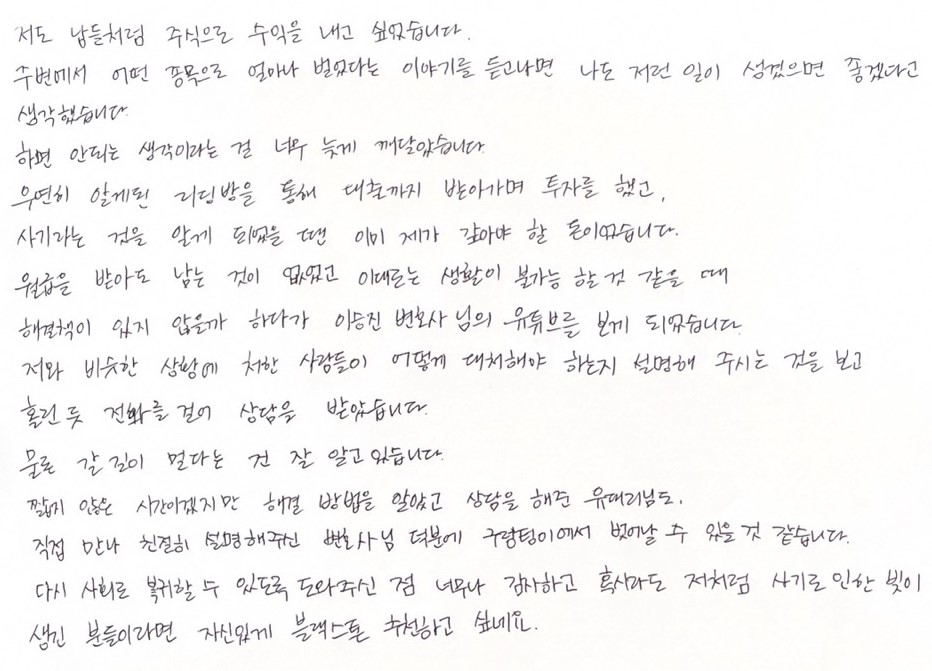 저도 남들처럼 주식으로 수익을 내고 싶었습니다.
주변에서 어떤 종목으로 얼마나 벌었다는 이야기를 듣고나면 나도 저런 일이 생겼으면 좋겠다고
생각했습니다.
하면 안되는 생각이라는 걸 너무 늦게 깨달았습니다.
우연히 알게된 리딩방을 통해 대출까지 받아가며 투자를 했고,
사기라는 것을 알게 되었을 땐 이미 제가 갚아야 할 돈이었습니다.
월급을 받아도 남는 것이 없었고 이대로는 생활이 불가능 할 것 같을 때
해결책이 있지 않을까 하다가 이승진 변호사님의 유튜브를 보게 되었습니다.
저와 비슷한 상황에 처한 사람들이 어떻게 대처해야 하는지 설명해 주시는 것을 보고
홀린 듯 전화를 걸어 상담을 받았습니다.
물론 갈 길이 멀다는 건 잘 알고있습니다.
짧지 않은 시간이겠지만 해결 방법을 알았고 상담을 해준 유대리님도,
직접 만나 친절히 설명해주신 변호사님 덕분에 구렁텅이에서 벗어날 수 있을 것 같습니다.
다시 사회로 복귀할 수 있도록 도와주신 점 너무나 감사하고 혹시라도 저처럼 사기로 인한 빚이
생긴 분들이라면 자신있게 블랙스톤 추천하고 싶네요.